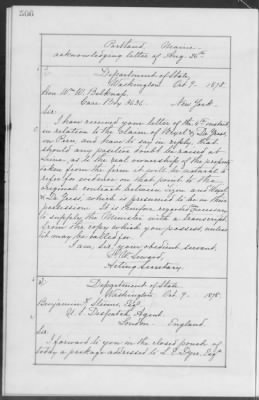 566
Portland, Maine.
acknowledging letter of Aug. 26th
Department of State,
Washington Oct. 9. 1878.
Hon. Wm W. Belknap.
Care Box 3636. New York.
Sir:
I have received your letter of the 6th instant,
in relation to the Claim of &
on Peru, and have to say in reply, that
should any question be raised at
Lima, as to the real ownership of the property
taken from the firm it will be natural to
refer for evidence on that point to the
original contract between and
& which is presumed to be in their
possession. It is therefore regarded necessary
to supply the Minister with a transcript
from the copy which you possess, unless
it may be called for.
I am, Sir, your obedient servant,
F. W. Seward,
Acting Secretary.
Department of State
Washington Oct. 9. 1878.
Benjamin F. Stevens, Esq.
U. S. Despatch Agent.
London. England.
Sir:
I forward to you in the closed pouch of
today a package addressed to Dyer, Esq.